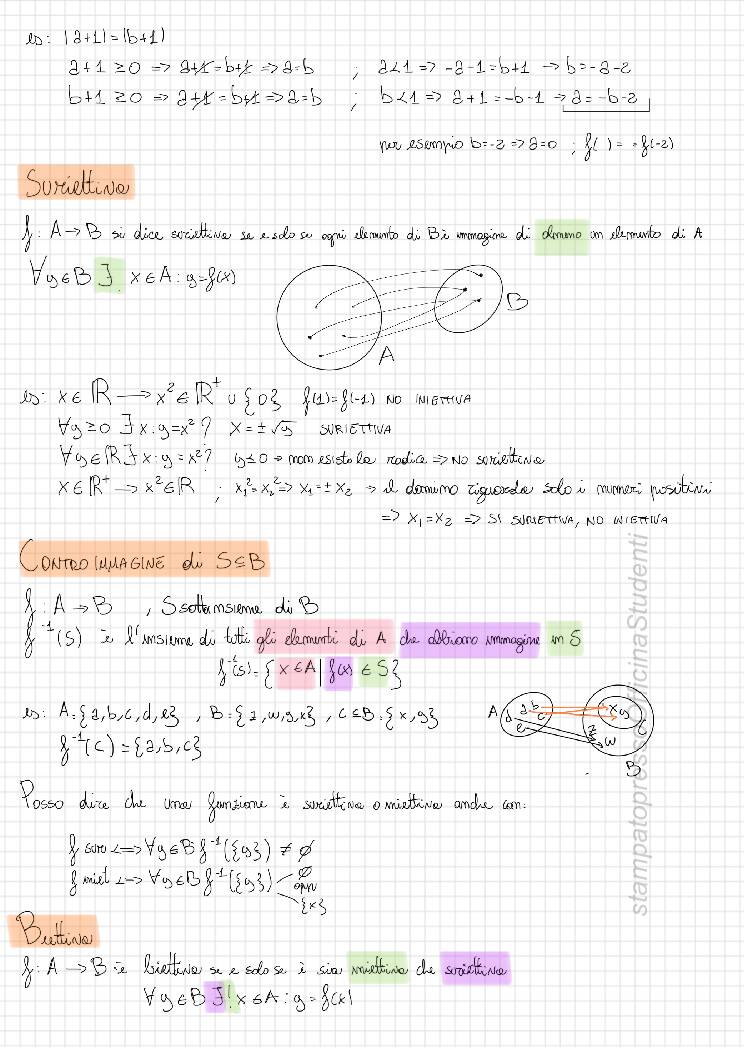 es: |a+1|=|b+1|
a+1 ≥0 => a+1=b+1 => a=b ; a<1 => -a-1=b+1 -> b=-a-2
b+1 ≥0 => a+1=b+1 => a=b ; b<1 => a+1=-b-1 -> a=-b-2
per esempio b=-2 => a=0 ; f( ) = f(-2)
Suriettiva
f: A→B si dice suriettiva se e solo se ogni elemento di B è immagine di almeno un elemento di A
∀y∈B ∃ x∈A : y=f(x)
B
A
es: x∈ℝ → x²∈ℝ⁺ ∪ {0} f(1)=f(-1) NO INIETTIVA
∀y≥0 ∃ x : y=x² ? X=±√y SURIETTIVA
∀y∈ℝ ∃ x : y=x² ? y≤0 → non esiste la radice => NO suriettiva
x∈ℝ⁺ → x²∈ℝ ; x₁²=x₂² => x₁=±x₂ → il dominio riguarda solo i numeri positivi
=> x₁=x₂ => SI SURIETTIVA, NO INIETTIVA
CONTROIMMAGINE di S⊆B
f: A→B , S sottoinsieme di B
f⁻¹(S) è l'insieme di tutti gli elementi di A che abbiano immagine in S
f⁻¹(S)={x∈A | f(x) ∈S}
es: A={a,b,c,d,e} , B={z,w,y,x} , C⊆B={x,y}
f⁻¹(C)={a,b,c}
A d a b c e x y C z w B
Posso dire che una funzione è suriettiva o iniettiva anche con:
f suri <=> ∀y∈B f⁻¹({y}) ≠ ∅
f iniet <=> ∀y∈B f⁻¹({y}) ∅
opp
{x}
Biettiva
f: A→B è biettiva se e solo se è sia iniettiva che suriettiva
∀y∈B ∃! x∈A : y=f(x)